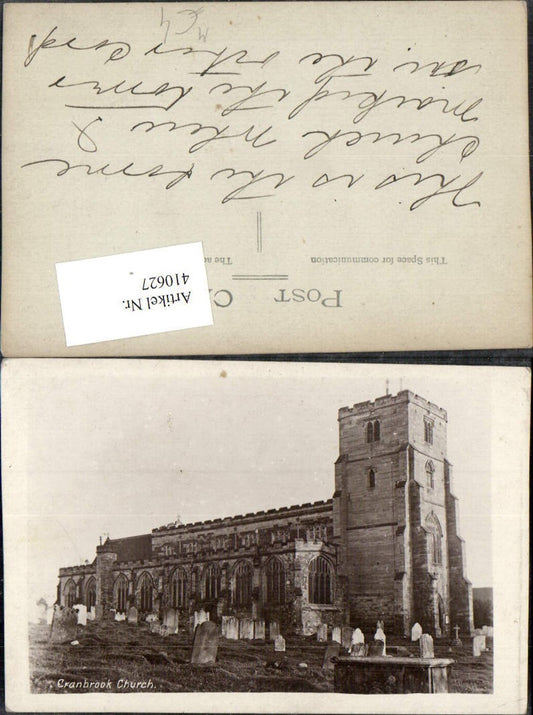 POST C
Artikel Nr.
410627
This Space for communication The
This is the same
Church where I
marked the tower
on the other Card.
Cranbrook Church.